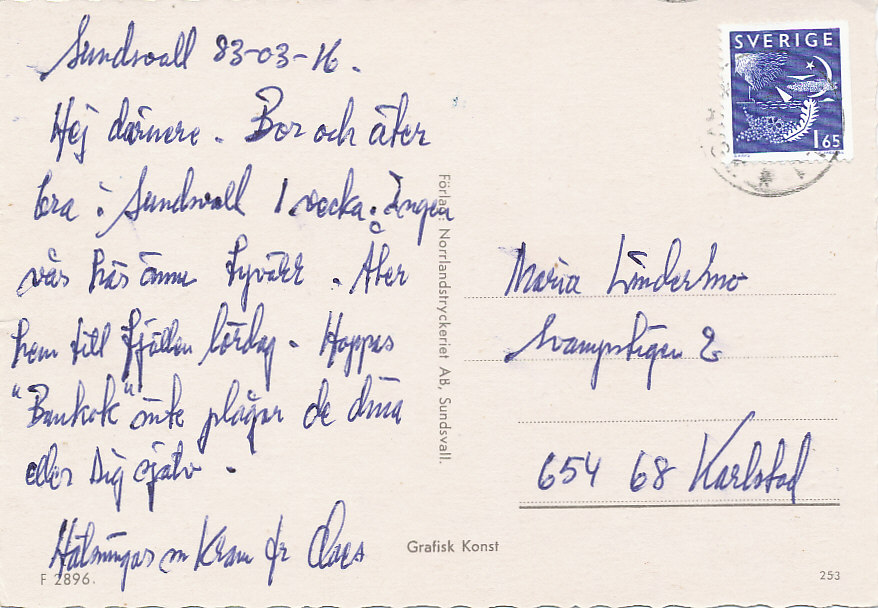 Sundsvall 83-03-16.
Hej därnere. Bor och äter
bra i Sundsvall 1 vecka. Ingen
vår här ännu tyvärr. Åter
hem till fjällen lördag. Hoppas
"Bankok" inte plågar de dina
eller Dig själv.
Hälsningar m Kram fr Claes
F 2896.
Förlag: Norrlandstryckeriet AB, Sundsvall.
Grafisk Konst
SVERIGE
1 65
Maria Lindermo
Svampstigen 2
654 68 Karlstad
253